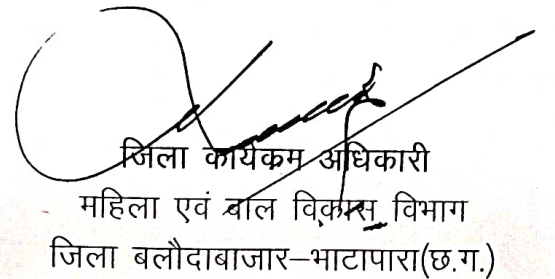 जिला कार्यकम अधिकारी
महिला एवं बाल विकास विभाग
जिला बलौदाबाजार–भाटापारा(छ.ग.)